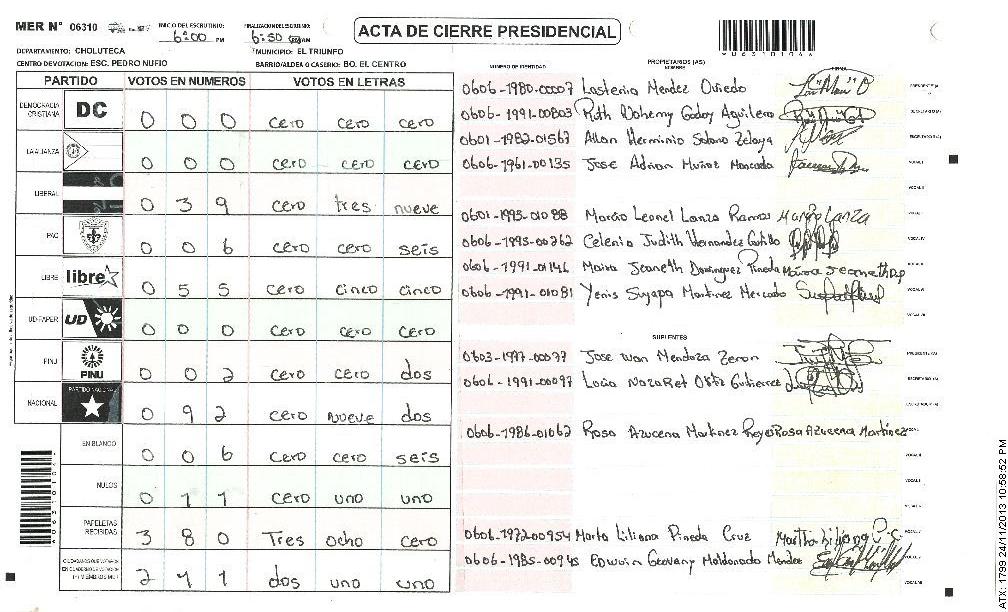 MER N° 06310 INICIO DEL ESCRUTINIO: 6:00 PM FINALIZACION DEL ESCRUTINIO: 6:50
ACTA DE CIERRE PRESIDENCIAL
DEPARTAMENTO: CHOLUTECA MUNICIPIO: EL TRIUNFO
CENTRO DE VOTACION: ESC. PEDRO NUFIO BARRIO/ALDEA O CASERIO: BO. EL CENTRO
PARTIDO VOTOS EN NUMEROS VOTOS EN LETRAS
DEMOCRACIA CRISTIANA DC 0 0 0 cero cero cero
LA ALIANZA 0 0 0 cero cero cero
LIBERAL 0 3 9 cero tres nueve
PAC 0 0 6 cero cero seis
LIBRE libre 0 5 5 cero cinco cinco
UD-FAPER UD 0 0 0 cero cero cero
PINU PINU 0 0 2 cero cero dos
NACIONAL PARTIDO NACIONAL 0 9 2 cero nueve dos
EN BLANCO 0 0 6 cero cero seis
NULOS 0 1 1 cero uno uno
PAPELETAS RECIBIDAS 3 8 0 Tres ocho cero
2 1 1 dos uno uno
NUMERO DE IDENTIDAD PROPIETARIOS (AS) NOMBRE FIRMA
0606-1980-00007 Lasteria Mendez Oviedo PRESIDENTE(A)
0606-1991-00803 Ruth Dohemy Godoy Aguilera SECRETARIO(A)
0601-1982-01567 Allan Herminio Solano Zelaya ESCRUTADOR(A)
0606-1961-00135 Jose Adrian Muñoz Moncada VOCAL I
VOCAL II
0601-1995-01088 Marco Leonel Lanza Ramos
0606-1995-00262 Celenia Judith Hernandez Castillo VOCAL IV
0606-1991-01146 Maira Jeaneth Dominguez Pineda
0606-1991-01081 Yenis Suyapa Martinez Mercado VOCAL VI
VOCAL VII
SUPLENTES
0603-1977-00077 Jose Ivan Mendoza Zeron PRESIDENTE(A)
0606-1991-00097 Locia Nazaret Ortiz Gutierrez SECRETARIO(A)
ESCRUTADOR(A)
0606-1986-01062 Rosa Azucena Martinez Reyes Rosa Azucena Martinez
0606-1972-00954 Marta Liliana Pineda Cruz
0606-1985-00945 Edwin Geovany Maldonado Mendez
ATX: 1799 24/11/2013 10:58:52 PM